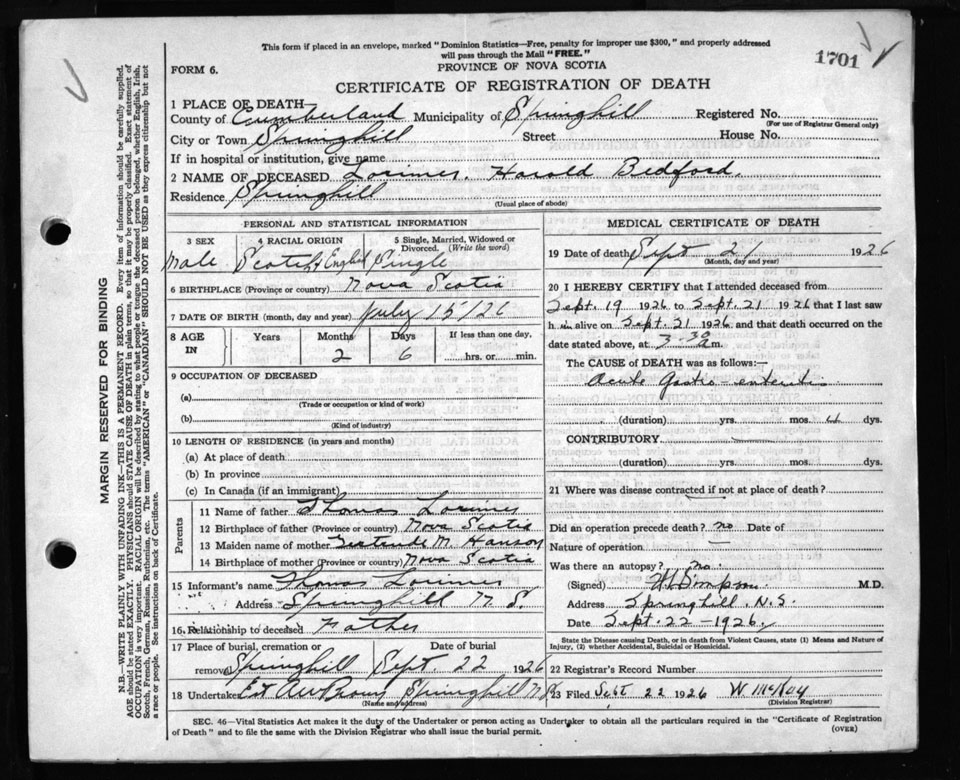 This form if placed in an envelope, marked "Dominion Statistics—Free, penalty for improper use $300," and properly addressed
will pass through the Mail "FREE."
1701
FORM 6.
PROVINCE OF NOVA SCOTIA
CERTIFICATE OF REGISTRATION OF DEATH
1 PLACE OF DEATH
County of Cumberland Municipality of Springhill Registered No.
(For use of Registrar General only)
City or Town Springhill Street House No.
If in hospital or institution, give name
2 NAME OF DECEASED Lorimer, Harold Bedford.
Residence Springhill
(Usual place of abode)
PERSONAL AND STATISTICAL INFORMATION
3 SEX 4 RACIAL ORIGIN 5 Single, Married, Widowed or
Divorced. (Write the word)
Male Scotch & English Single
6 BIRTHPLACE (Province or country) Nova Scotia
7 DATE OF BIRTH (month, day and year) July 15/26
8 AGE IN Years Months Days If less than one day,
2 6 hrs. or min.
9 OCCUPATION OF DECEASED
(a)
(Trade or occupation or kind of work)
(b)
(Kind of industry)
10 LENGTH OF RESIDENCE (in years and months)
(a) At place of death
(b) In province
(c) In Canada (if an immigrant)
Parents
11 Name of father Thomas Lorimer
12 Birthplace of father (Province or country) Nova Scotia
13 Maiden name of mother Gertrude M. Hanson
14 Birthplace of mother (Province or country) Nova Scotia
15 Informant's name Thomas Lorimer
Address Springhill N.S.
16 Relationship to deceased Father
17 Place of burial, cremation or Date of burial
removal Springhill Sept. 22 1926
18 Undertaker Springhill N.S.
(Name and address)
MEDICAL CERTIFICATE OF DEATH
19 Date of death Sept 21 1926
(Month, day and year)
20 I HEREBY CERTIFY that I attended deceased from
Sept. 19 1926 to Sept. 21 1926 that I last saw
h im alive on Sept. 21 1926 and that death occurred on the
date stated above, at 3-30 a m.
The CAUSE of DEATH was as follows:—
Acute Gastro-enteritis
(duration) yrs. mos. dys.
CONTRIBUTORY
(duration) yrs. mos. dys.
21 Where was disease contracted if not at place of death?
Did an operation precede death? no Date of
Nature of operation —
Was there an autopsy? no.
(Signed) Simpson M.D.
Address Springhill, N.S.
Date Sept. 22-1926.
State the Disease causing Death, or in death from Violent Causes, state (1) Means and Nature of
Injury, (2) whether Accidental, Suicidal or Homicidal.
22 Registrar's Record Number
23 Filed Sept 22 1926 W McKay
(Division Registrar)
SEC. 46—Vital Statistics Act makes it the duty of the Undertaker or person acting as Undertaker to obtain all the particulars required in the "Certificate of Registration
of Death" and to file the same with the Division Registrar who shall issue the burial permit.
(OVER)
MARGIN RESERVED FOR BINDING
N.B.—WRITE PLAINLY WITH UNFADING INK—THIS IS A PERMANENT RECORD. Every item of information should be carefully supplied.
AGE should be stated EXACTLY. PHYSICIANS should STATE CAUSE OF DEATH in plain terms, so that it may be properly classified. Exact statement of
OCCUPATION is very important. RACIAL ORIGIN will be described by stating to what people or tongue the deceased person belonged, whether English, Irish,
Scotch, French, German, Russian, Ruthenian, etc. The terms "AMERICAN" or "CANADIAN" SHOULD NOT BE USED as they express citizenship but not
a race or people. See instructions on back of Certificate.